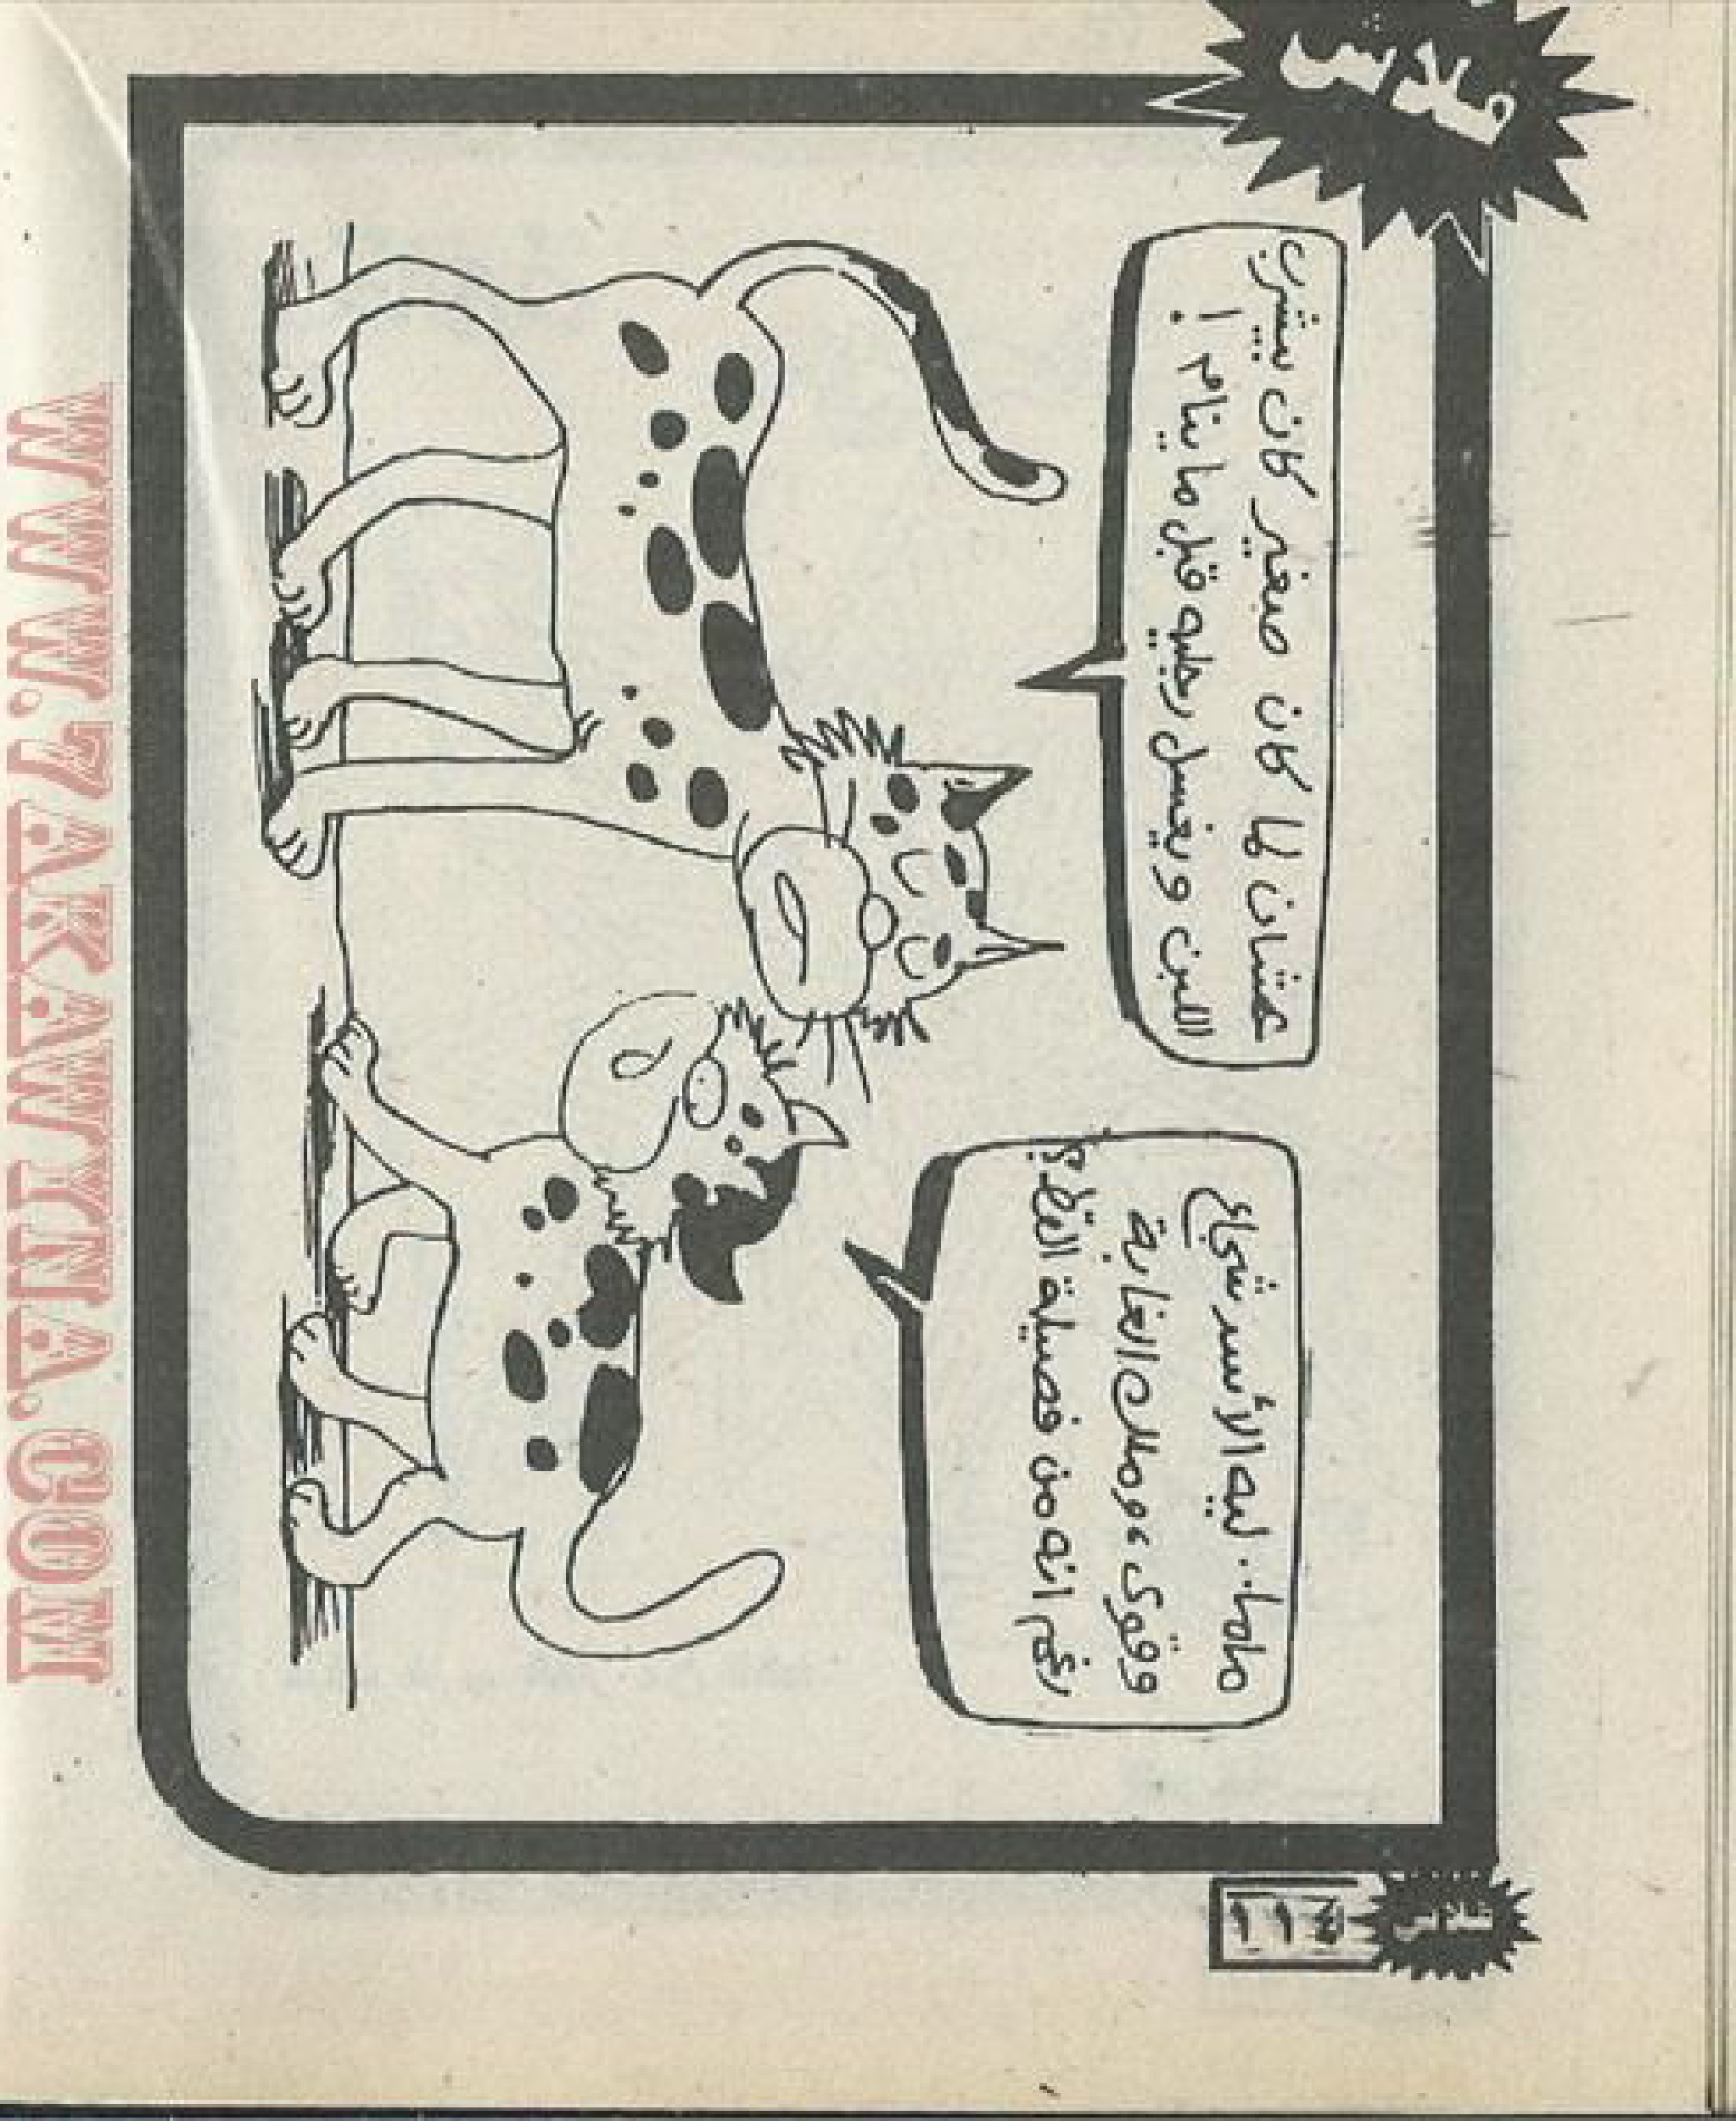 ماما.. ليه الأسد شجاع
وقوى، وملك الغابة
رغم انه من فصيلة القطط؟
عشان لما كان صغير كان بيشرب
اللبن ويغسل رجليه قبل ما ينام!
WWW.7AKAWITNA.COM